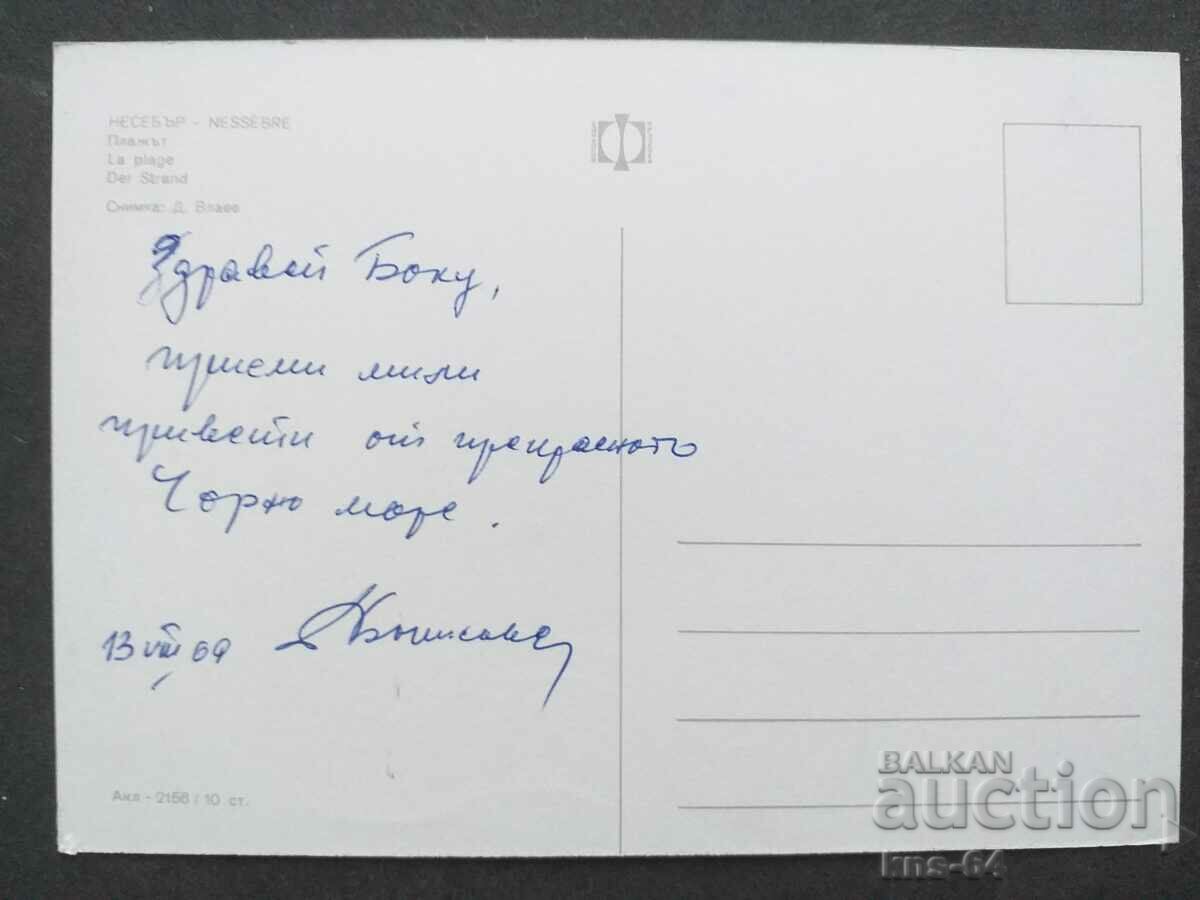 НЕСЕБЪР - NESSÈBRE
Плажът
La plage
Der Strand
Снимка: Д. Влаев
Здравей Боку,
приеми мили
привети от прекрасното
Чорно море.
13 VIII 69
Акл - 2158 / 10 ст.
BALKAN
auction
kns-64